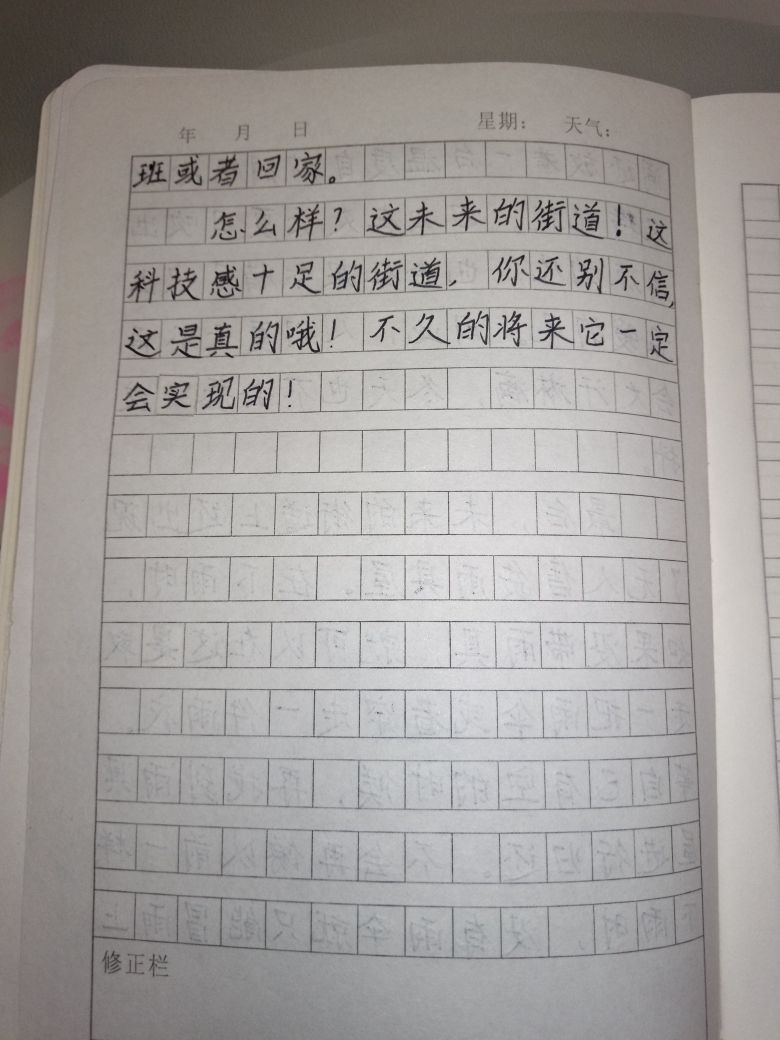 年 月 日 星期： 天气：
班或者回家。
怎么样？这未来的街道！这
科技感十足的街道，你还别不信，
这是真的哦！不久的将来它一定
会实现的！
修正栏